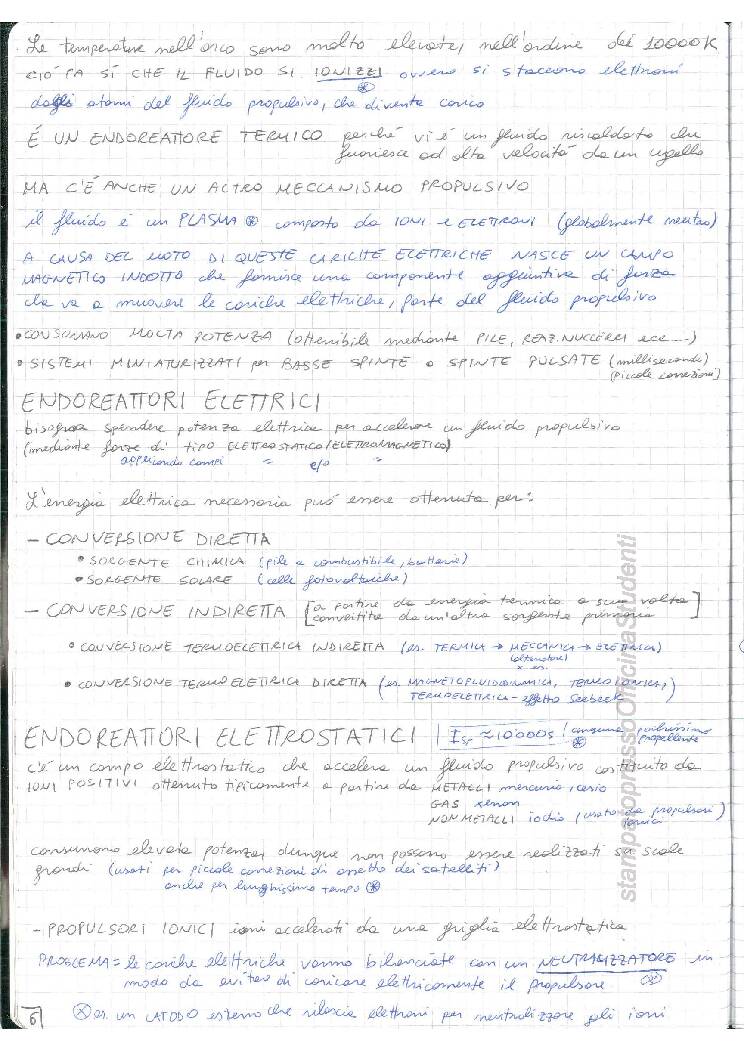 Le temperature nell'arco sono molto elevate, nell'ordine dei 10000K
CIÒ FA SÌ CHE IL FLUIDO SI IONIZZI ovvero si staccano elettroni
dagli atomi del fluido propulsivo, che diventa carico
È UN ENDOREATTORE TERMICO perché vi è un fluido riscaldato che
fuoriesce ad alta velocità da un ugello
MA C'È ANCHE UN ALTRO MECCANISMO PROPULSIVO
il fluido è un PLASMA ⊛ composto da IONI e ELETTRONI (globalmente neutro)
A CAUSA DEL MOTO DI QUESTE CARICHE ELETTRICHE NASCE UN CAMPO
MAGNETICO INDOTTO che fornisce una componente aggiuntiva di forza
che va a muovere le cariche elettriche, parte del fluido propulsivo
• CONSUMANO MOLTA POTENZA (ottenibile mediante PILE, REAZ. NUCLEARI ecc...)
• SISTEMI MINIATURIZZATI per BASSE SPINTE o SPINTE PULSATE (millisecondi)
(piccole correzioni)
ENDOREATTORI ELETTRICI
bisogna spendere potenza elettrica per accelerare un fluido propulsivo
(mediante forze di tipo ELETTROSTATICO/ELETTROMAGNETICO)
applicando campi " e/o "
L'energia elettrica necessaria può essere ottenuta per:
- CONVERSIONE DIRETTA
• SORGENTE CHIMICA (pile a combustibile, batterie)
• SORGENTE SOLARE (celle fotovoltaiche)
- CONVERSIONE INDIRETTA [a partire da energia termica a sua volta
convertita da un'altra sorgente primaria]
• CONVERSIONE TERMOELETTRICA INDIRETTA (es. TERMICA → MECCANICA → ELETTRICA)
(alternatore)
x es.
• CONVERSIONE TERMOELETTRICA DIRETTA (es. MAGNETOFLUIDODINAMICA, TERMOIONICA,
TERMOELETTRICA - effetto Seebeck)
ENDOREATTORI ELETTROSTATICI | Isp ≈ 10'000s (consuma pochissimo
propellente
⊛
c'è un campo elettrostatico che accelera un fluido propulsivo costituito da
IONI POSITIVI ottenuto tipicamente a partire da METALLI mercurio, cesio
GAS xenon
NON METALLI iodio (usato da propulsori
ionici)
consumano elevata potenza, dunque non possono essere realizzati su scale
grandi (usati per piccole correzioni di assetto dei satelliti)
anche per lunghissimo tempo ⊛
- PROPULSORI IONICI ioni accelerati da una griglia elettrostatica
PROBLEMA = le cariche elettriche vanno bilanciate con un NEUTRALIZZATORE in
modo da evitare di caricare elettricamente il propulsore ⊗
⊗ es. un CATODO esterno che rilascia elettroni per neutralizzare gli ioni
6
stampatopressoOfficinaStudenti